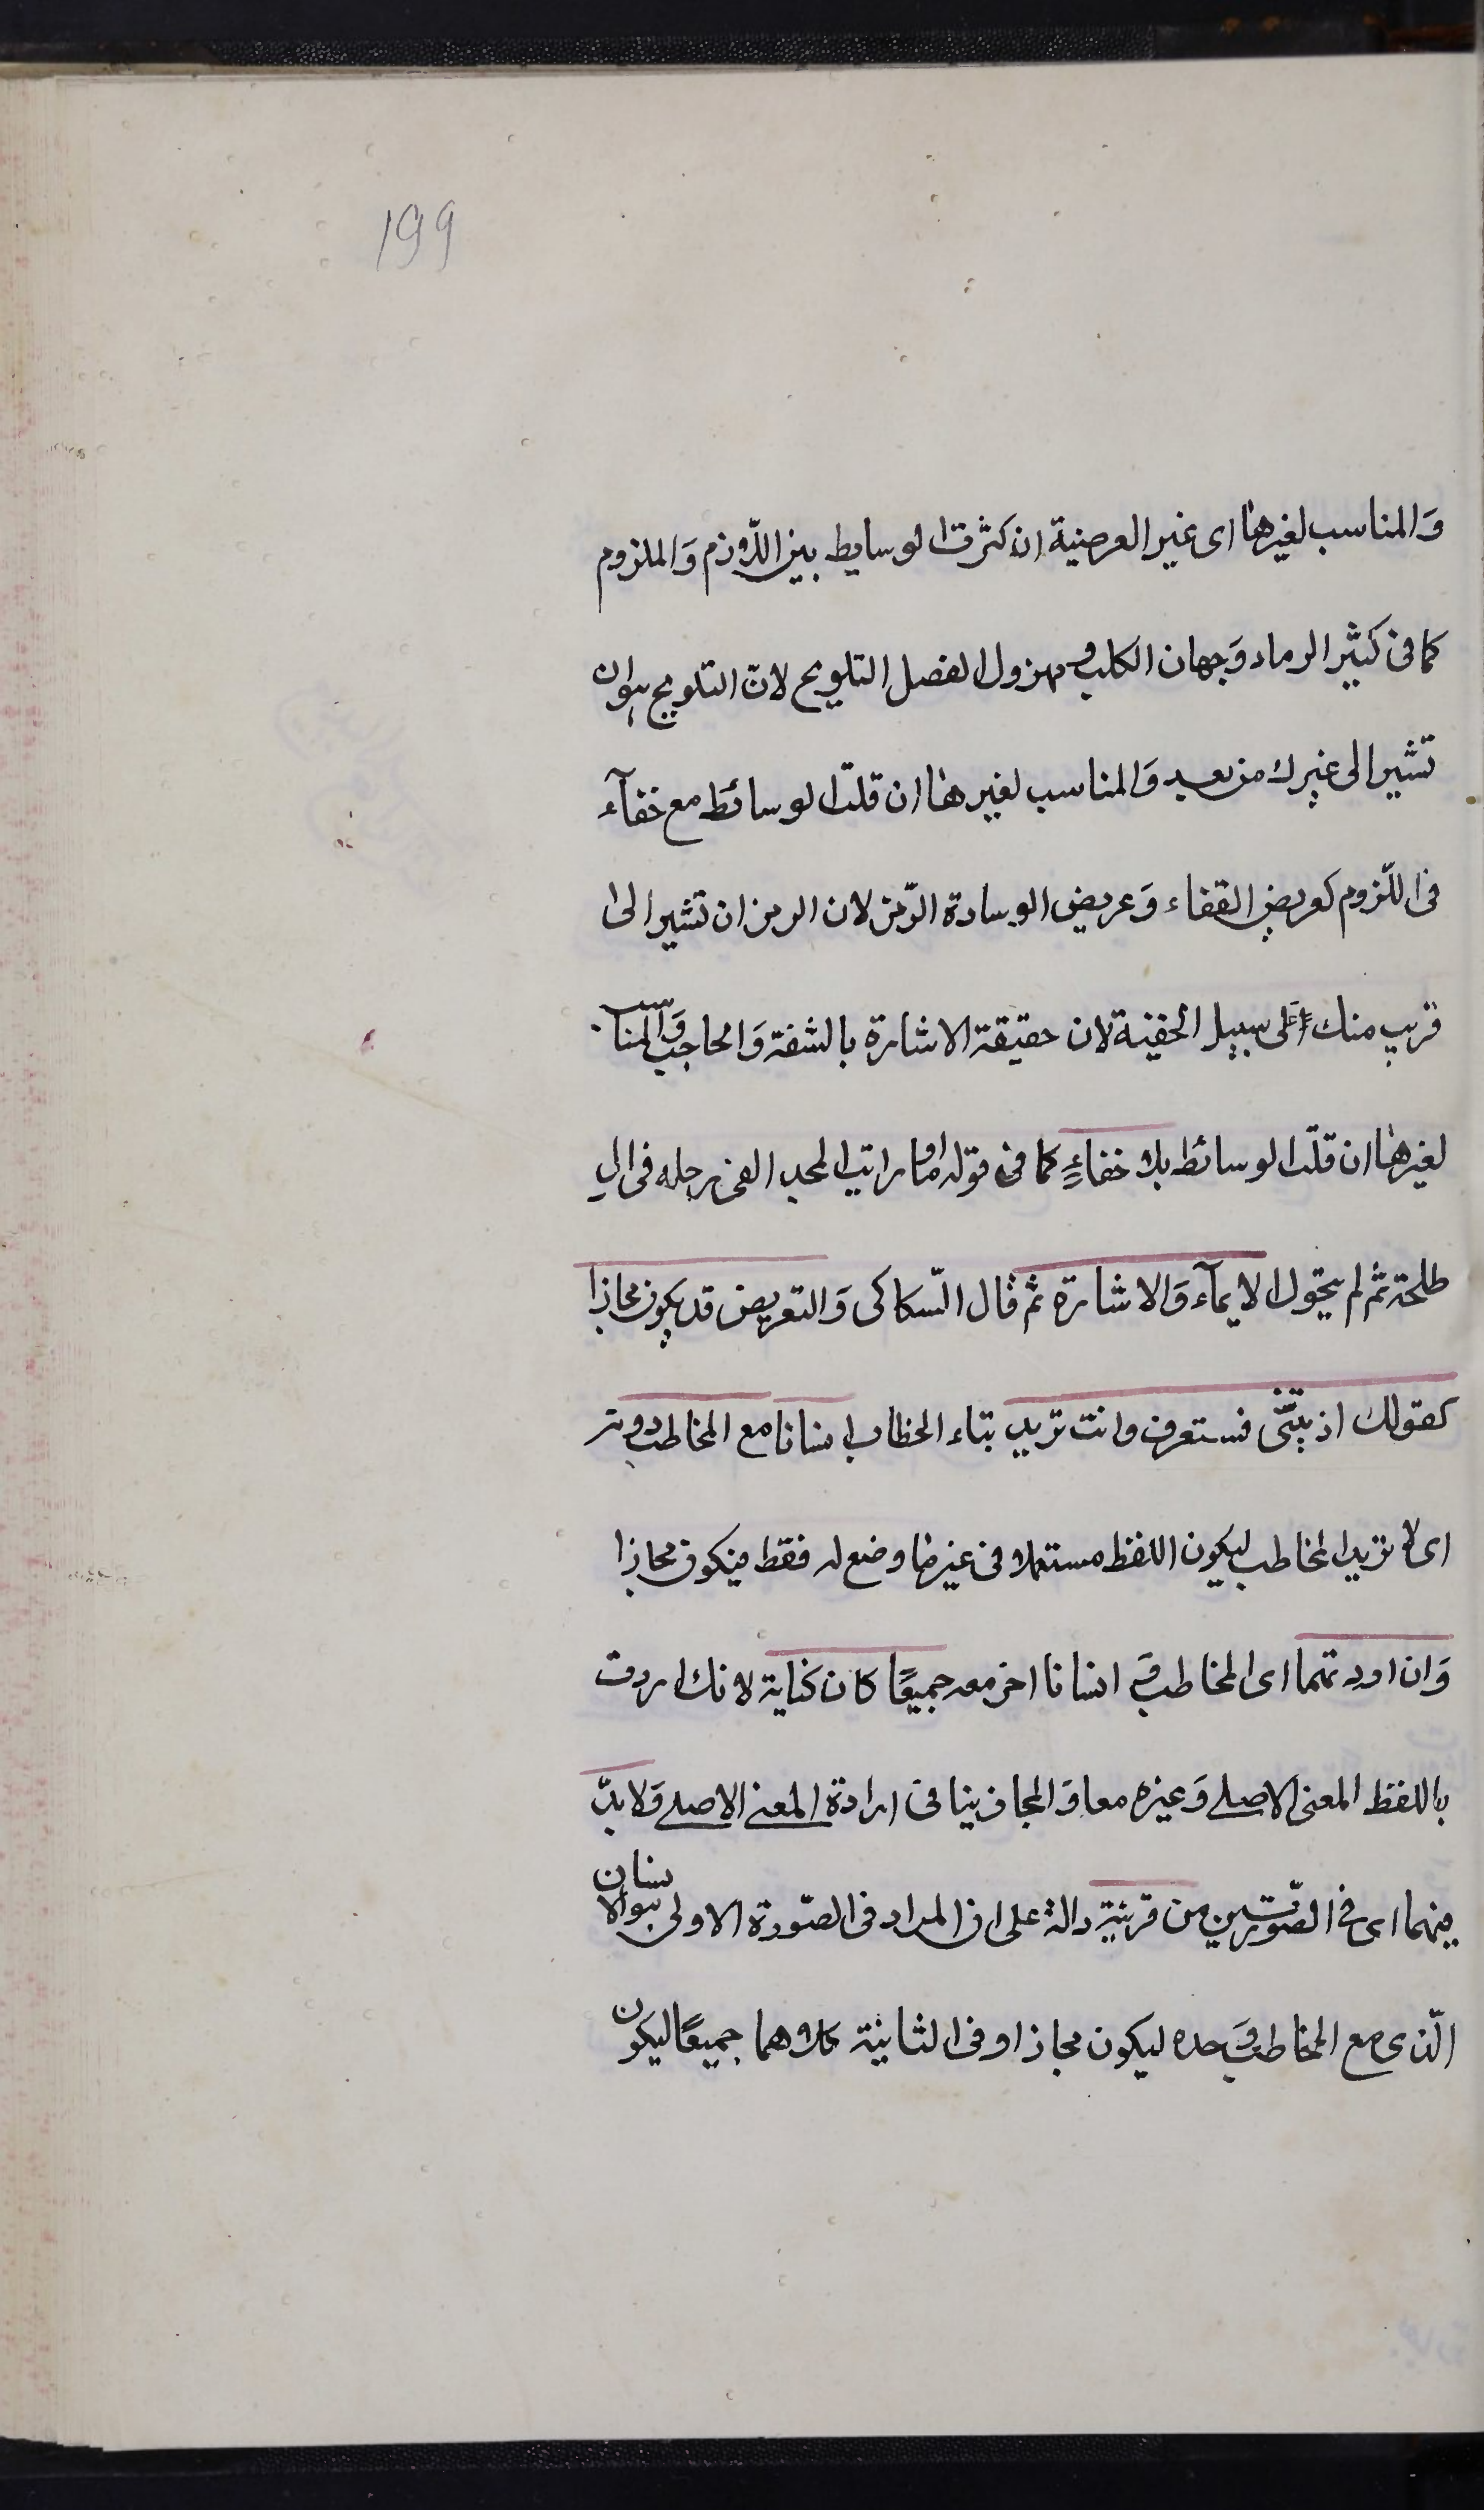 199
وَالمناسب لغيرها اى غير العرضية ان كثرت الوسايط بين اللّازم وَالملزوم
كما فى كثير الرماد وَجبان الكلب ومهزول الفصل التلويح لانّ التلويح هوان
تشير الى غيرك من بعيد وَالمناسب لغيرها ان قلّت الوسائط مع خفآء
فى اللّزوم كعريض القفاء وَعريض الوسادة الرّمز لان الرمز ان تشير الى
قريب منك على سبيل الخفية لان حقيقة الاشارة بالشفة وَالحاجب وَالمناسب
لغيرها ان قلّت الوسائط بلا خفاءٍ كما فى قوله اوما رايت المجد القى رحله فى ال
طلحة ثم لم يتحول الايمآء وَالاشارة ثم قال السّكاكى وَالتعريض قد يكون مجازا
كقولك اذيتنى فستعرف وانت تريد بتاء الخطاب انسانا مع المخاطب دونه
اى لا تريد المخاطب ليكون اللفظ مستعملا فى غير ما وضع له فقط فيكون مجازا
وَان اردتهما اى المخاطب وَ انسانا اخر معه جميعًا كان كناية لانك اردت
باللفظ المعنى الاصلى وَغيره معا وَالمجاز ينافى ارادة المعنى الاصلى وَلا بدّ
فيهما اى فى الصّورتين من قرينة دالة على ان المراد فى الصّورة الاولى هو الانسان
الّذى مع المخاطب وَحده ليكون مجازا وفى الثانية كلاهما جميعًا ليكون